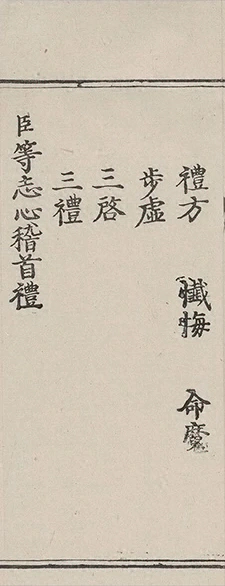 禮方　懺悔　命魔
步虛
三啓
三禮
臣等志心稽首禮